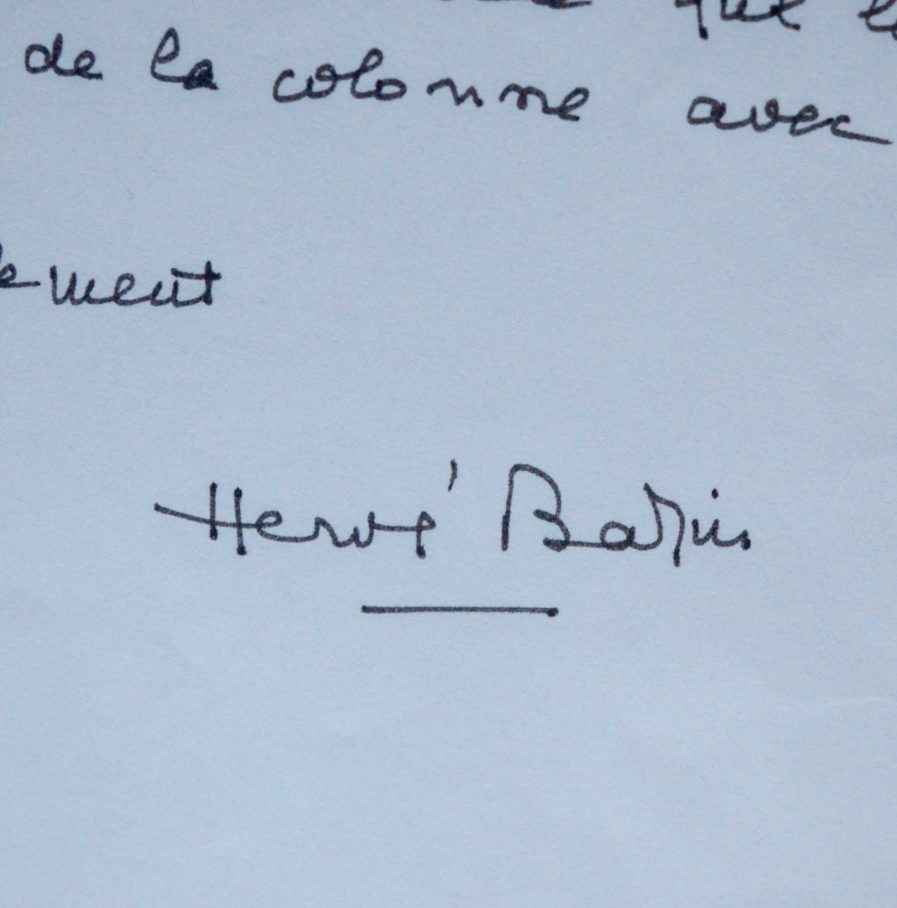 que
de la colonne avec
ement
Hervé Bazin